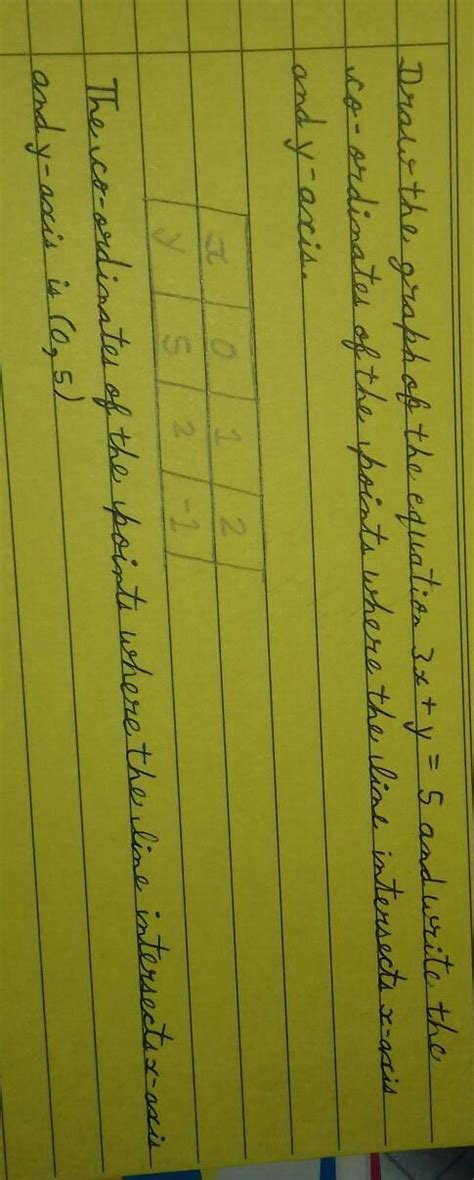 Draw the graph of the equation 3x + y = 5 and write the
co-ordinates of the points where the line intersects x-axis
and y-axis.
x 0 1 2
y 5 2 -1
The co-ordinates of the points where the line intersects x-axis
and y-axis is (0, 5)